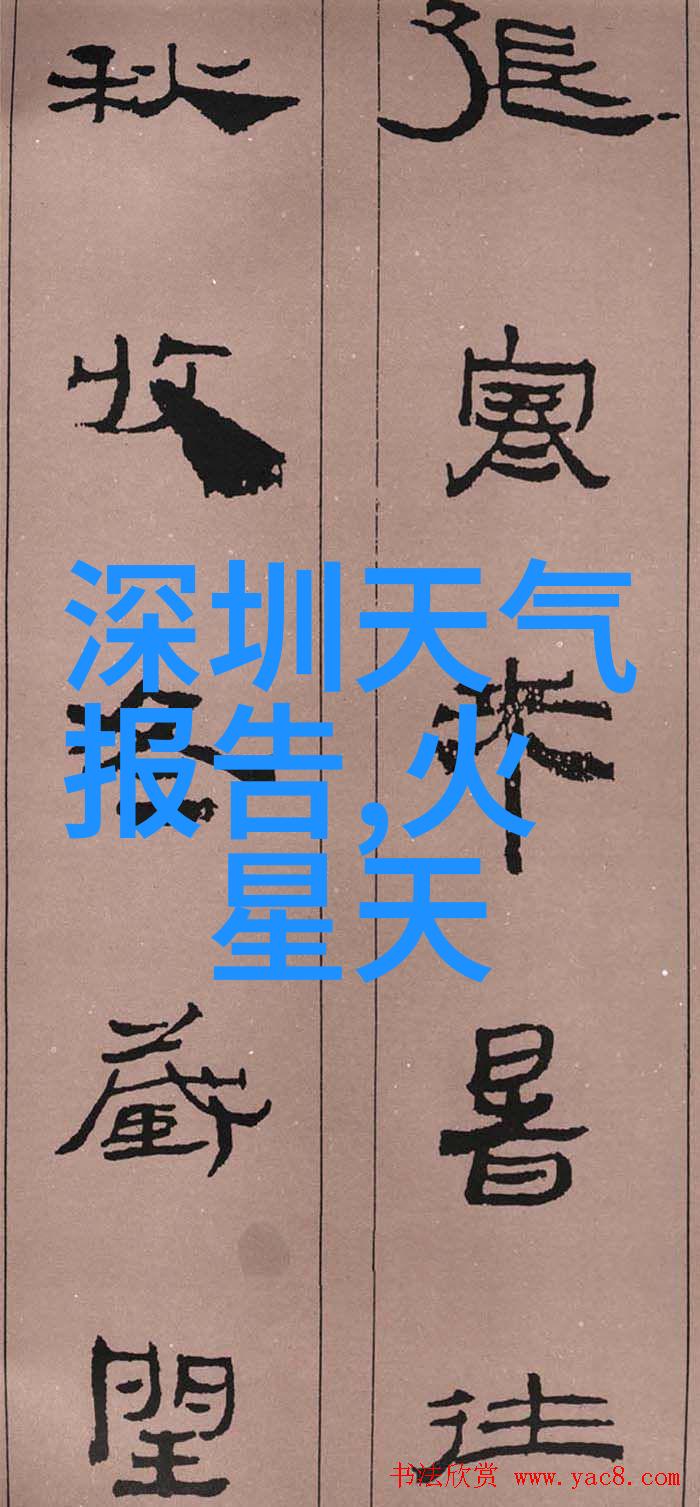 張寒来暑往
秋收冬藏閏
深圳天气
报告,火
星天
书法欣赏 www.yac8.com